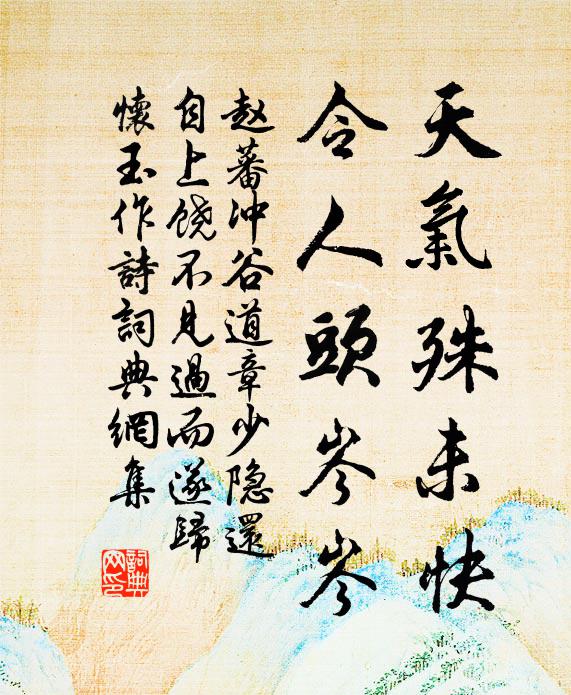 天氣殊未快
令人頭岑岑
赵蕃沖谷道章少隐還
自上饒不見過而遂歸
懷玉作詩詞典網集
詞典網印